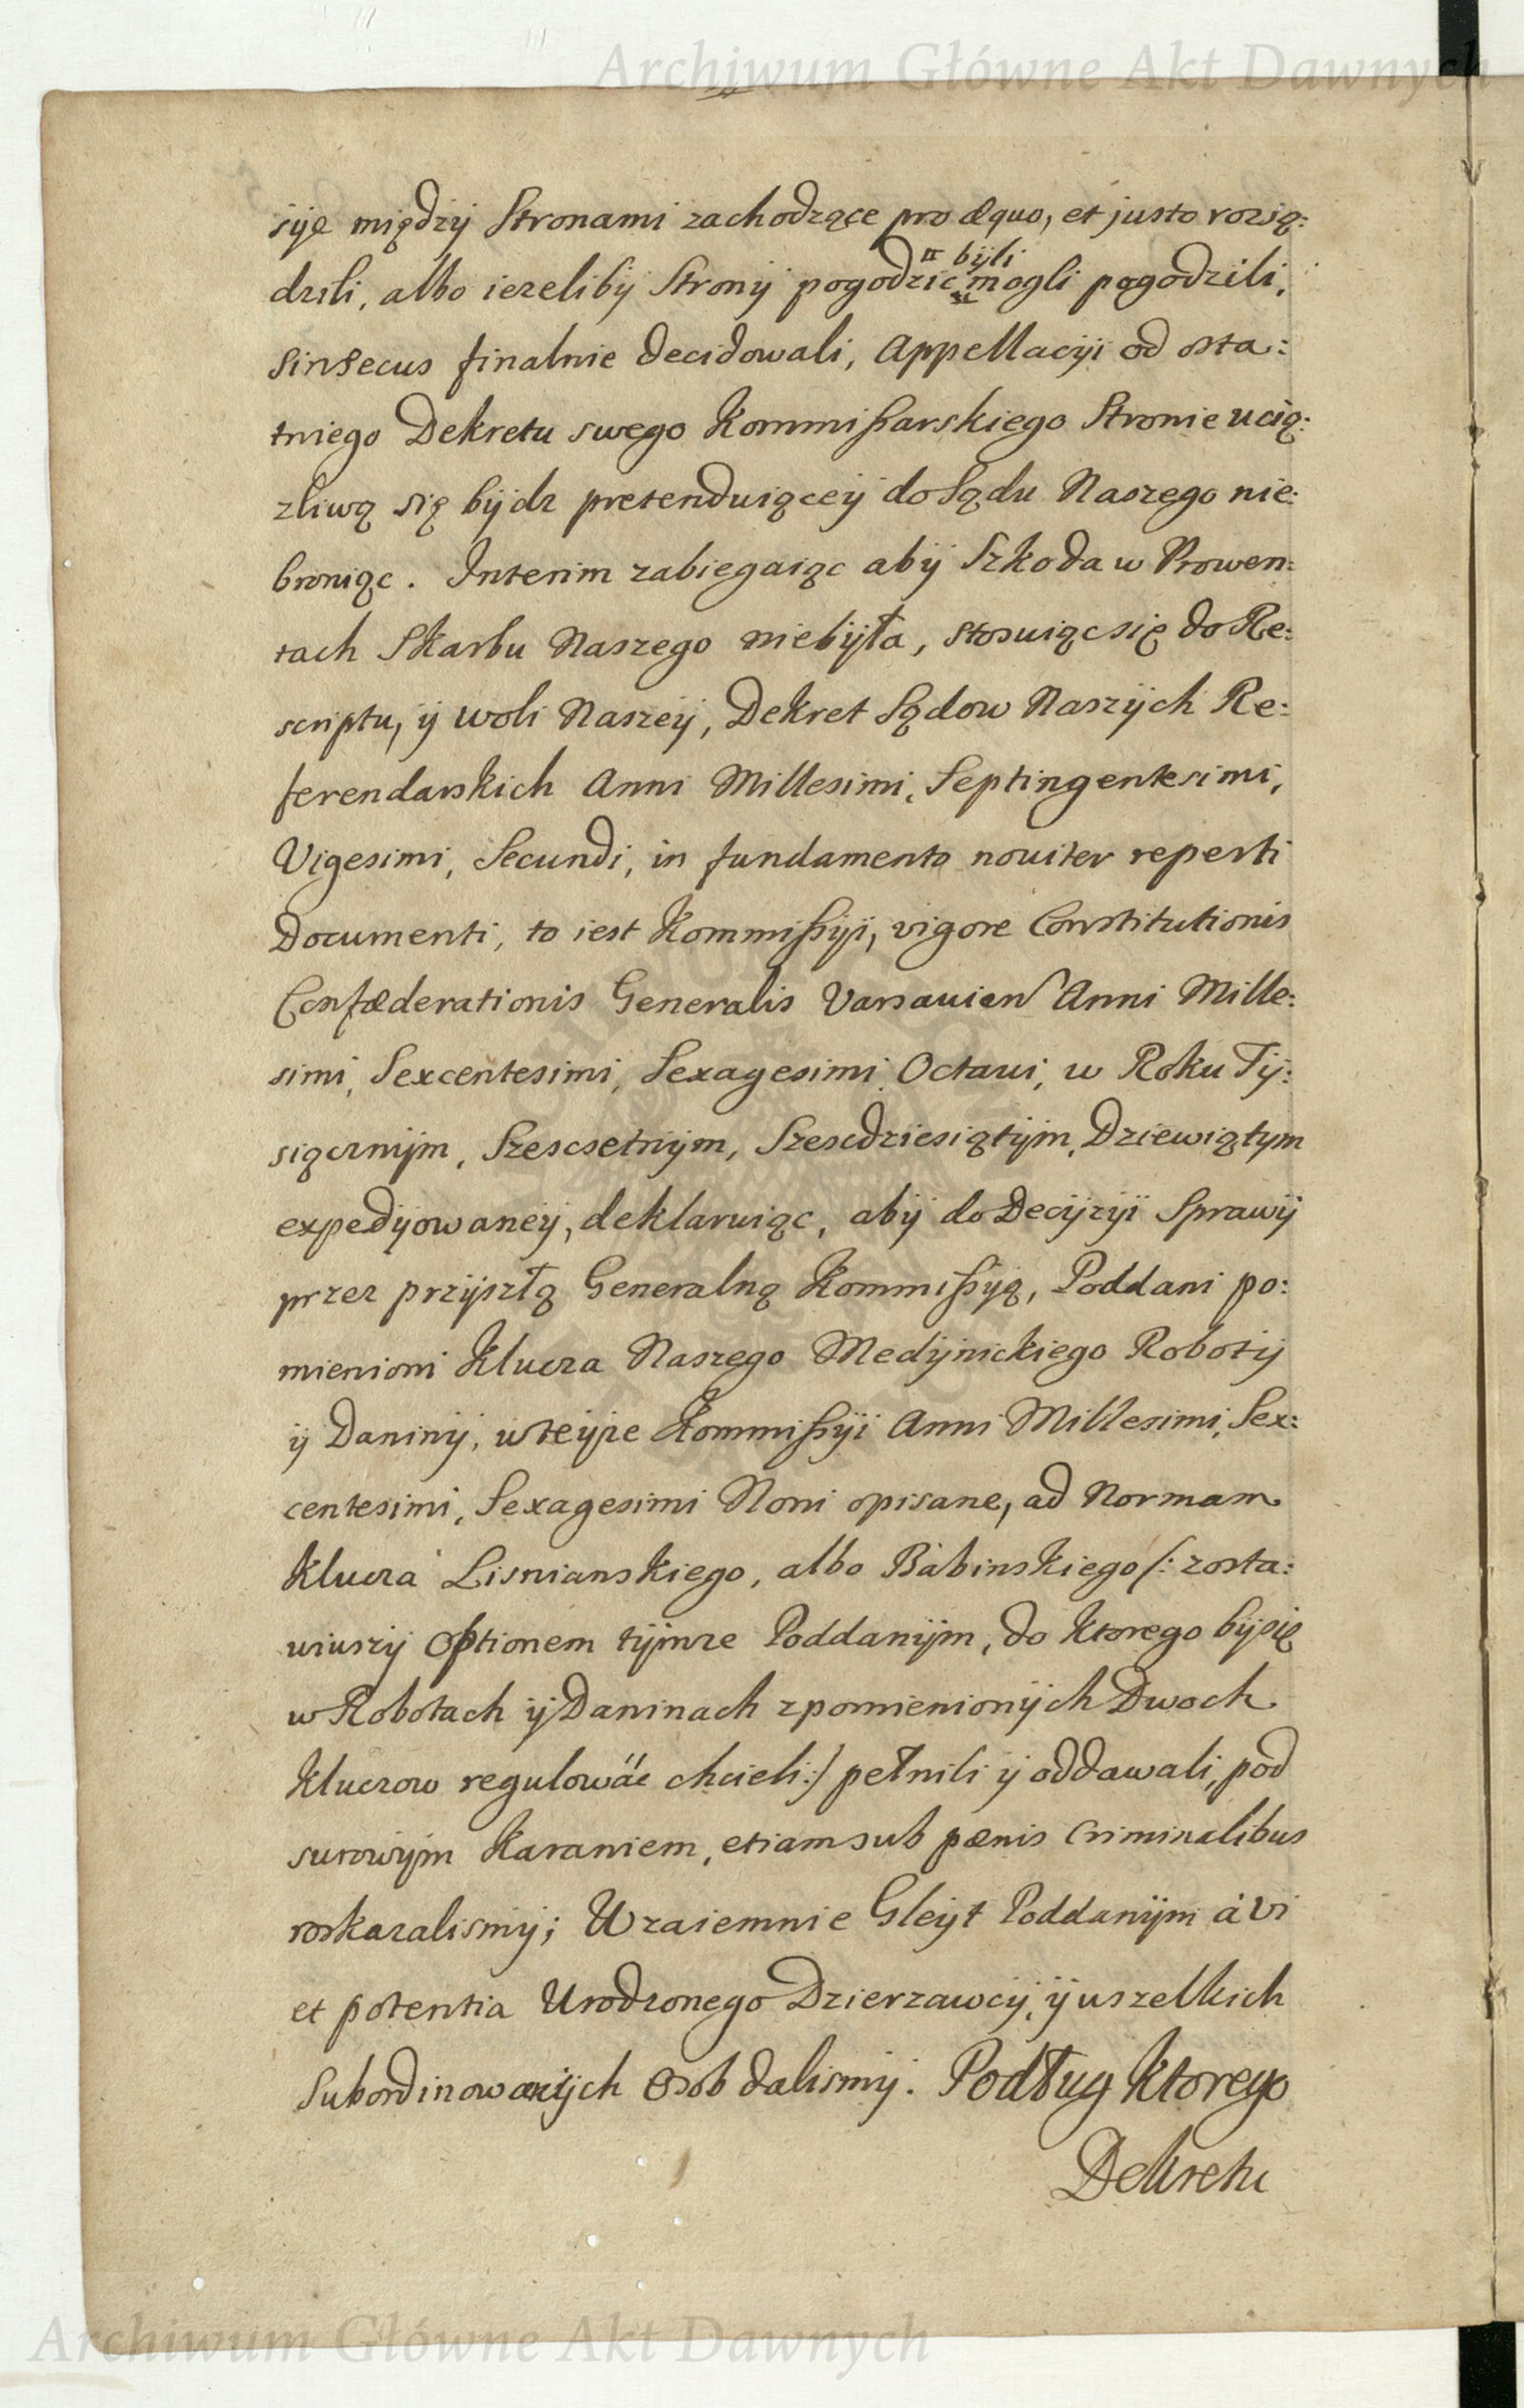 Archiwum Główne Akt Dawnych
syę między Stronami zachodzące pro æquo, et justo rozsą:
były
dzili, albo iezeliby Strony pogodzić mogli pogodzili,
Sinsecus finalnie decidowali, Appellacyi od osta:
tniego Dekretu swego Kommißarskiego Stronie ucią:
zliwą się bydz pretenduiącey do Sądu Naszego nie:
broniąc. Interim zabiegaiąc aby Szkoda w Prowen:
tach Skarbu Naszego niebyła, stosuiąc się do Re:
scriptu, y woli Naszey, Dekret Sądow Naszych Re:
ferendarskich Anni Millesimi, Septingentesimi,
Vigesimi, Secundi, in fundamento noviter reperti
Documenti, to iest Kommißyi, vigore Constitutionis
Confæderationis Generalis Varsavien Anni Mille:
simi, Sexcentesimi, Sexagesimi Octavi, w Roku Ty:
siącznym, Szescsetnym, Szescdziesiątym, Dziewiątym
expedyowaney, deklaruiąc, aby do Decyzyi Sprawy
przez przyszłą Generalną Kommißyą, Poddani po:
mienioni Klucza Naszego Medynickiego Roboty
y Daniny, w teyze Kommißyi Anni Millesimi, Sex:
centesimi, Sexagesimi Noni opisane, ad Normam
Klucza Lisnianskiego, albo Babinskiego /: zosta:
wiwszy Optionem tymze Poddanym, do ktorego by się
w Robotach y Daninach z pomienionych Dwoch
Kluczow regulowác chcieli :/ pełnili y oddawali, pod
surowym karaniem, etiam sub pœnis Criminalibus
roskazalismy; Wzaiemnie Gleyt Poddanym à vi
et potentia Urodzonego Dzierzawcy, y wszelkich
Subordinowanych Osob dalismy. Podług ktorego
Dekretu
Archiwum Główne Akt Dawnych